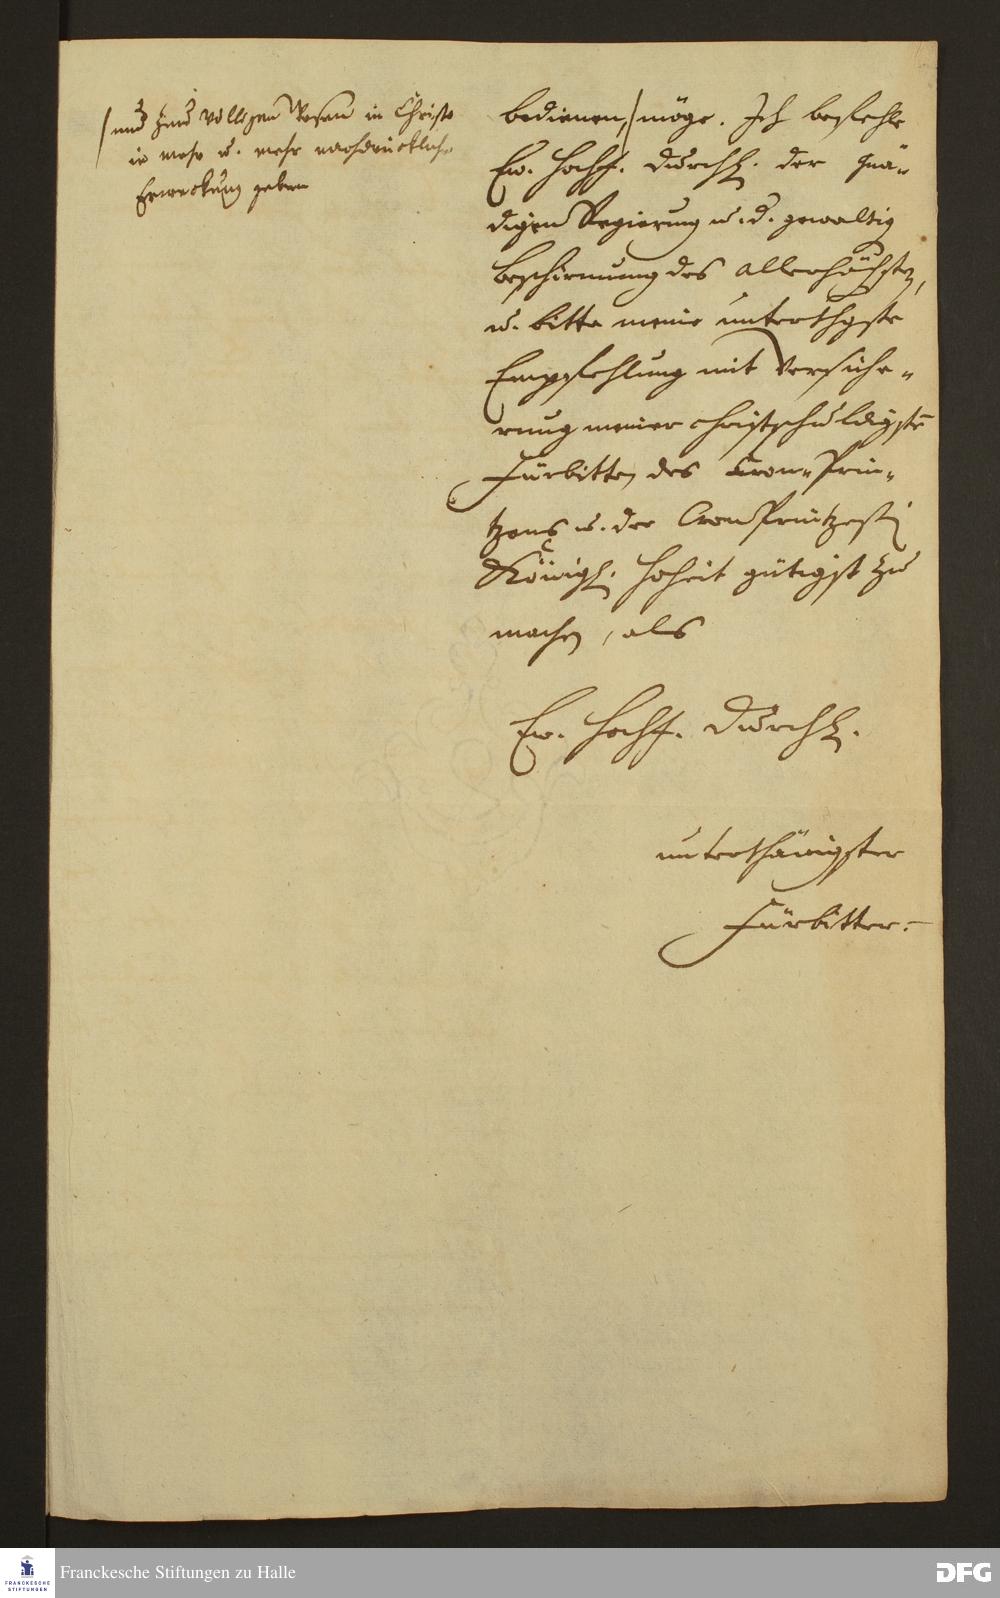 /und zum völligen Wesen in Christo
je mehr u. mehr nachdrückliche
Erweckung geben
bedienen,/möge. Ich befehle
Ew. Hochf. Durchl. der gnä-
digen Regierung u. d. gewaltig
Beschirmung des allerhöchsten,
u. bitte meine unterthgste
Empfehlung mit Versiche-
rung meiner christschuldigste
Fürbitten des Cron-Prin-
tzens u. der CronPrintzeßin
Königl. Hoheit gütigst zu
machen, als
Ew. Hochf. Durchl.
unterthänigster
Fürbitter.
Franckesche Stiftungen zu Halle
FRANCKESCHE
STIFTUNGEN
DFG